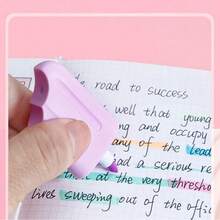 road to success
well that young
and occupy
any of the lead
had a serious re
at the very thresho
lives sweeping out of the offi